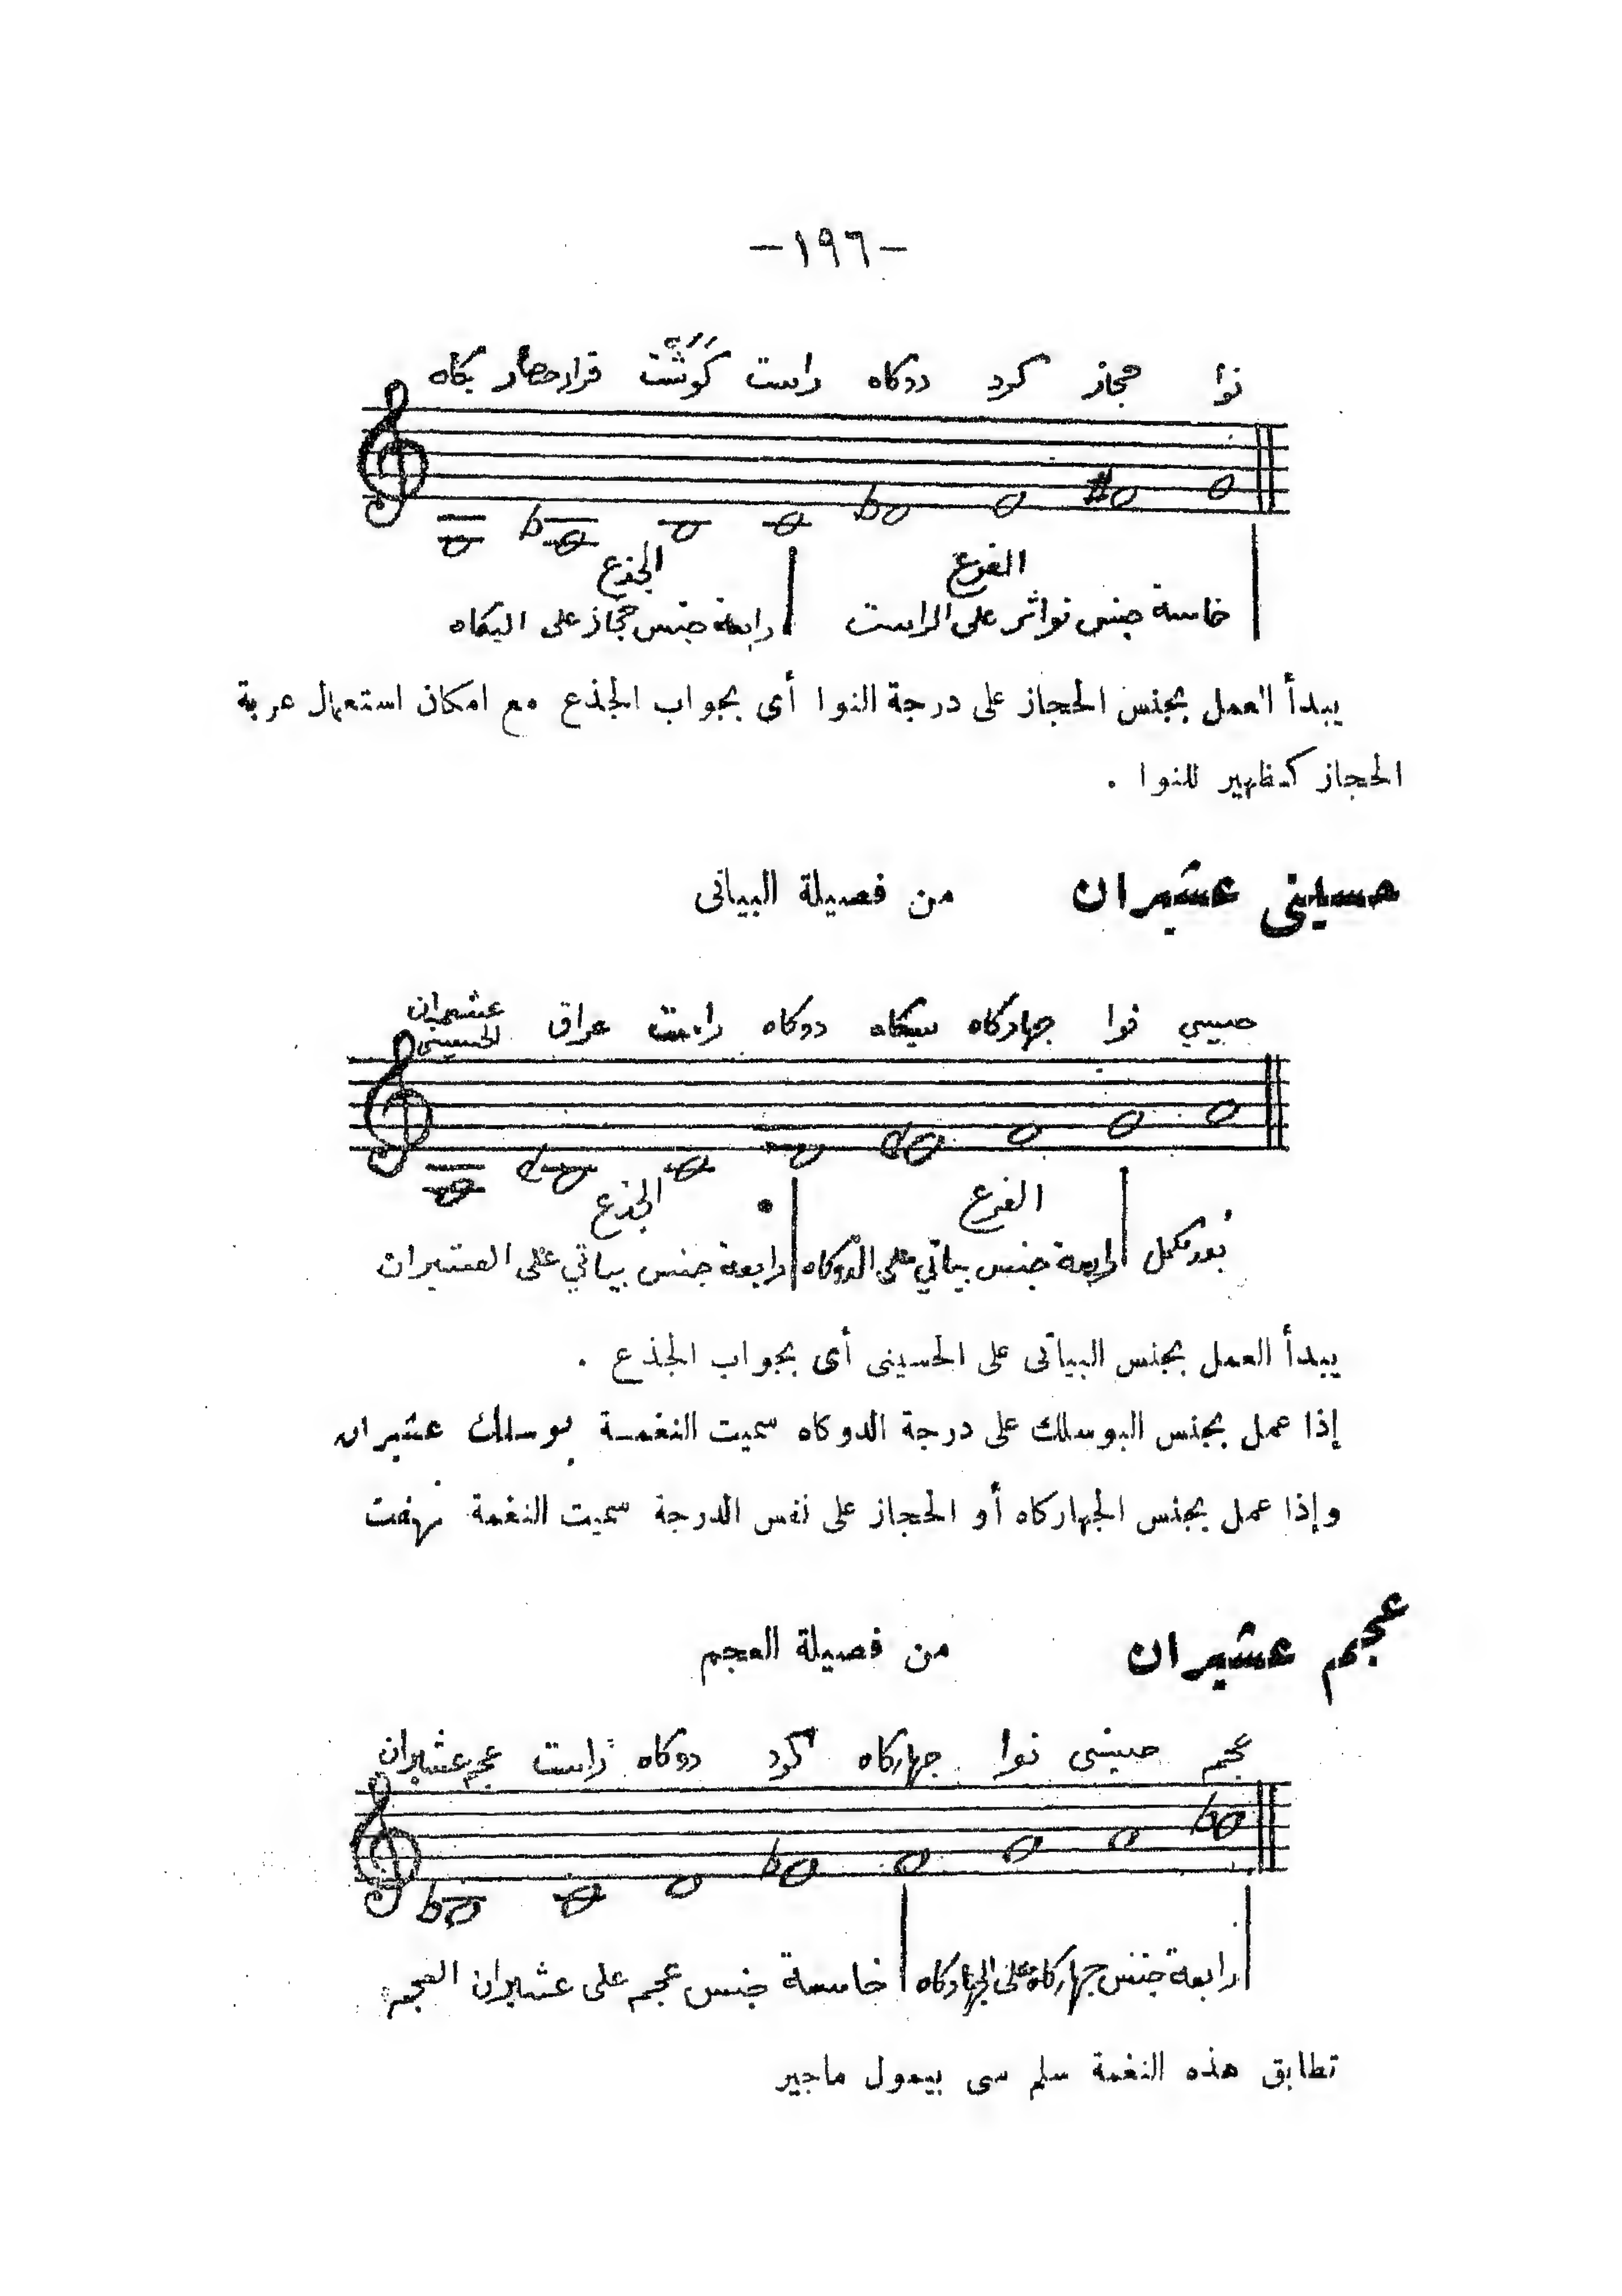 -١٩٦-
نوا حجاز كرد دوكاه راست كوشت قرار حصار يكاه
الفرع الجذع
خامسة جنس نواثر على الراست رابعة جنس حجاز على اليكاه
يبدأ العمل بجنس الحجاز على درجة النوا أى بجواب الجذع مع امكان استعمال عربة
الحجاز كظهير للنوا .
حسينى عشيران من فصيلة البياتى
حسيني نوا جهاركاه سيكاه دوكاه راست عراق عشيران الحسيني
الفرع الجذع
بعد مكمل رابعة جنس بياتي على الدوكاه رابعة جنس بياتي على العشيران
يبدأ العمل بجنس البياتى على الحسينى أى بجواب الجذع .
إذا عمل بجنس البوسلك على درجة الدوكاه سميت النغمة بوسلك عشيران
وإذا عمل بجنس الجهاركاه أو الحجاز على نفس الدرجة سميت النغمة نهفت
عجم عشيران من فصيلة العجم
عجم حسينى نوا جهاركاه كرد دوكاه راست عجم عشيران
رابعة جنس جهاركاه على الجهاركاه خامسة جنس عجم على عشيران العجم
تطابق هذه النغمة سلم سى بيمول ماجير